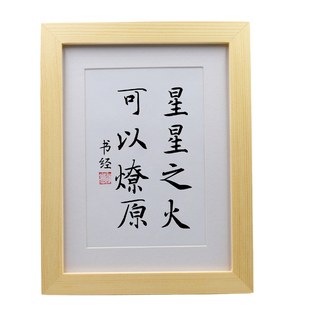 星星之火
可以燎原
书经